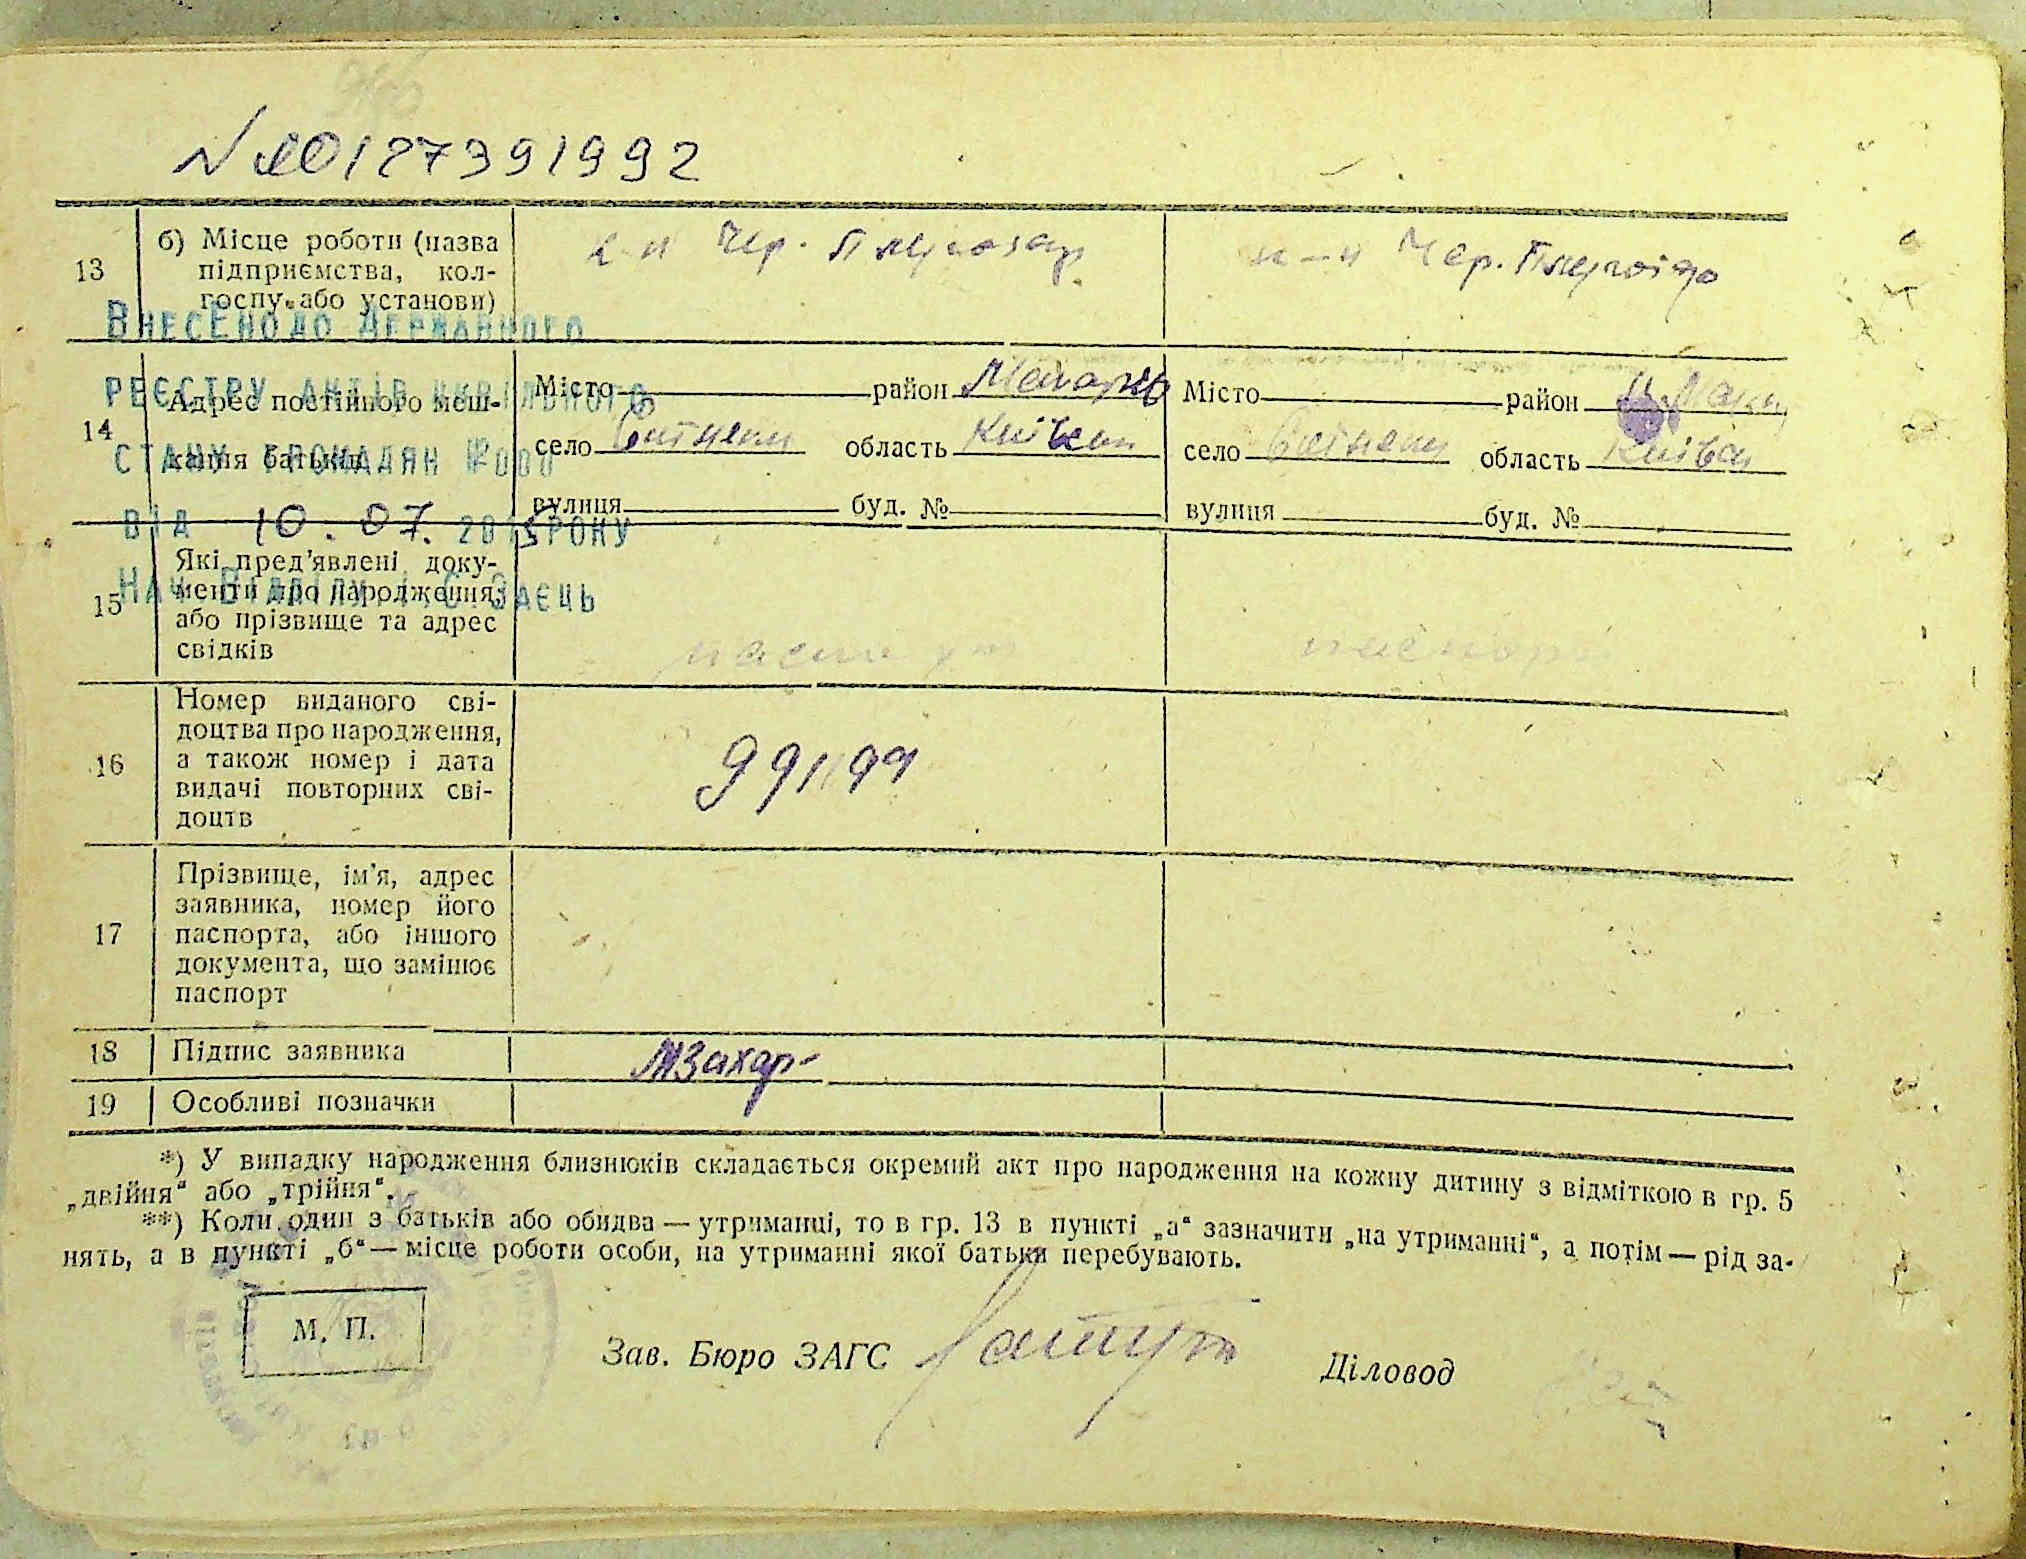 № 00127391992
13
б) Місце роботи (назва
підприємства, кол-
госпу або установи)
к-п Чер. Плугозар
к-п Чер. Плугозар
Внесено до Державного
реєстру актів цивільного
стану громадян №000
від 10.07.2015 року
Нач. відділу І.С. Заєць
14
Адрес постійного меш-
кання батьків
Місто район Макарів
село область Київськ
вулиця буд. №
Місто район
село область Київськ
вулиця буд. №
15
Які пред'явлені доку-
менти про народження,
або прізвище та адрес
свідків
паспорт
паспорт
16
Номер виданого сві-
доцтва про народження,
а також номер і дата
видачі повторних сві-
доцтв
991199
17
Прізвище, ім'я, адрес
заявника, номер його
паспорта, або іншого
документа, що замінює
паспорт
18
Підпис заявника
МЗахар-
19
Особливі позначки
*) У випадку народження близнюків складається окремий акт про народження на кожну дитину з відміткою в гр. 5
„двійня“ або „трійня“.
**) Коли один з батьків або обидва — утриманці, то в гр. 13 в пункті „а“ зазначити „на утриманні“, а потім — рід за-
нять, а в пункті „б“ — місце роботи особи, на утриманні якої батьки перебувають.
М. П.
Зав. Бюро ЗАГС
Діловод